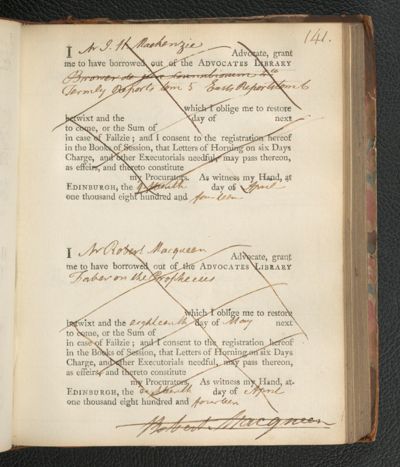 141.
I Mr J. H. Mackenzie Advocate, grant
me to have borrowed out of the ADVOCATES LIBRARY
Brower de
Termly Reports tom 5 East's Reports tom 6
which I oblige me to restore
betwixt and the day of next
to come, or the Sum of
in case of Failzie ; and I consent to the registration hereof
in the Books of Session, that Letters of Horning on six Days
Charge, and other Executorials needful, may pass thereon,
as effeirs, and thereto constitute
my Procurators. As witness my Hand, at
EDINBURGH, the day of April
one thousand eight hundred and fourteen
I Mr Robert Macqueen Advocate, grant
me to have borrowed out of the ADVOCATES LIBRARY
Faber on the Prophecies
which I oblige me to restore
betwixt and the eighteenth day of May next
to come, or the Sum of
in case of Failzie ; and I consent to the registration hereof
in the Books of Session, that Letters of Horning on six Days
Charge, and other Executorials needful, may pass thereon,
as effeirs, and thereto constitute
my Procurators. As witness my Hand, at
EDINBURGH, the day of April
one thousand eight hundred and fourteen
Robert Macqueen